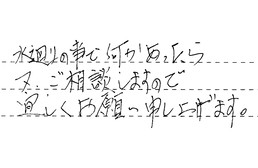 水廻りの事で何かあったら
又、ご相談しますので
宜しくお願い申し上げます。